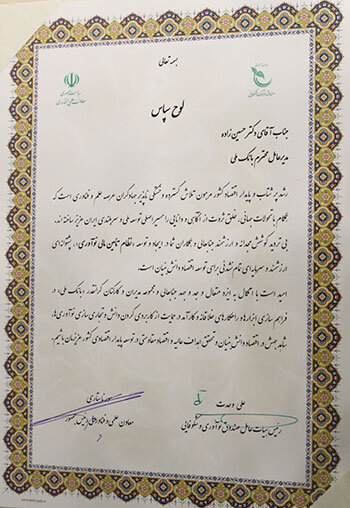 بسمه تعالی
ریاست جمهوری
معاونت علمی و فناوری
لوح سپاس
جناب آقای دکتر حسین زاده
مدیرعامل محترم بانک ملی
رشد پرشتاب و پایدار اقتصاد کشور مرهون تلاش گسترده و خستگی ناپذیر جهادگران عرصه علم و فناوری است که
همگام با تحولات جهانی، خلق ثروت از آگاهی و دانایی را مسیر اصلی توسعه ملی و سربلندی ایران عزیز ساخته اند.
بی تردید کوشش مجدانه و ارزشمند جنابعالی و همکاران شما در ایجاد و توسعه «نظام تامین مالی نوآوری»، پشتوانه ای
ارزشمند و سرمایه ای تمام نشدنی برای توسعه اقتصاد دانش بنیان است.
امید است با اتکال به ایزد متعال و جد و جهد جنابعالی و مجموعه مدیران و کارکنان گرانقدر «بانک ملی» در
فراهم سازی ابزارها و راهکارهای خلاقانه و کارآمد در حمایت از کاربردی کردن دانش و تجاری سازی نوآوری ها،
شاهد جهش در اقتصاد دانش بنیان و تحقق اهداف عالیه و اقتصاد مقاومتی در توسعه پایدار اقتصادی کشور عزیزمان باشیم.
علی وحدت
رئیس هیات عامل صندوق نوآوری و شکوفایی
سورنا ستاری
معاون علمی و فناوری رئیس جمهور